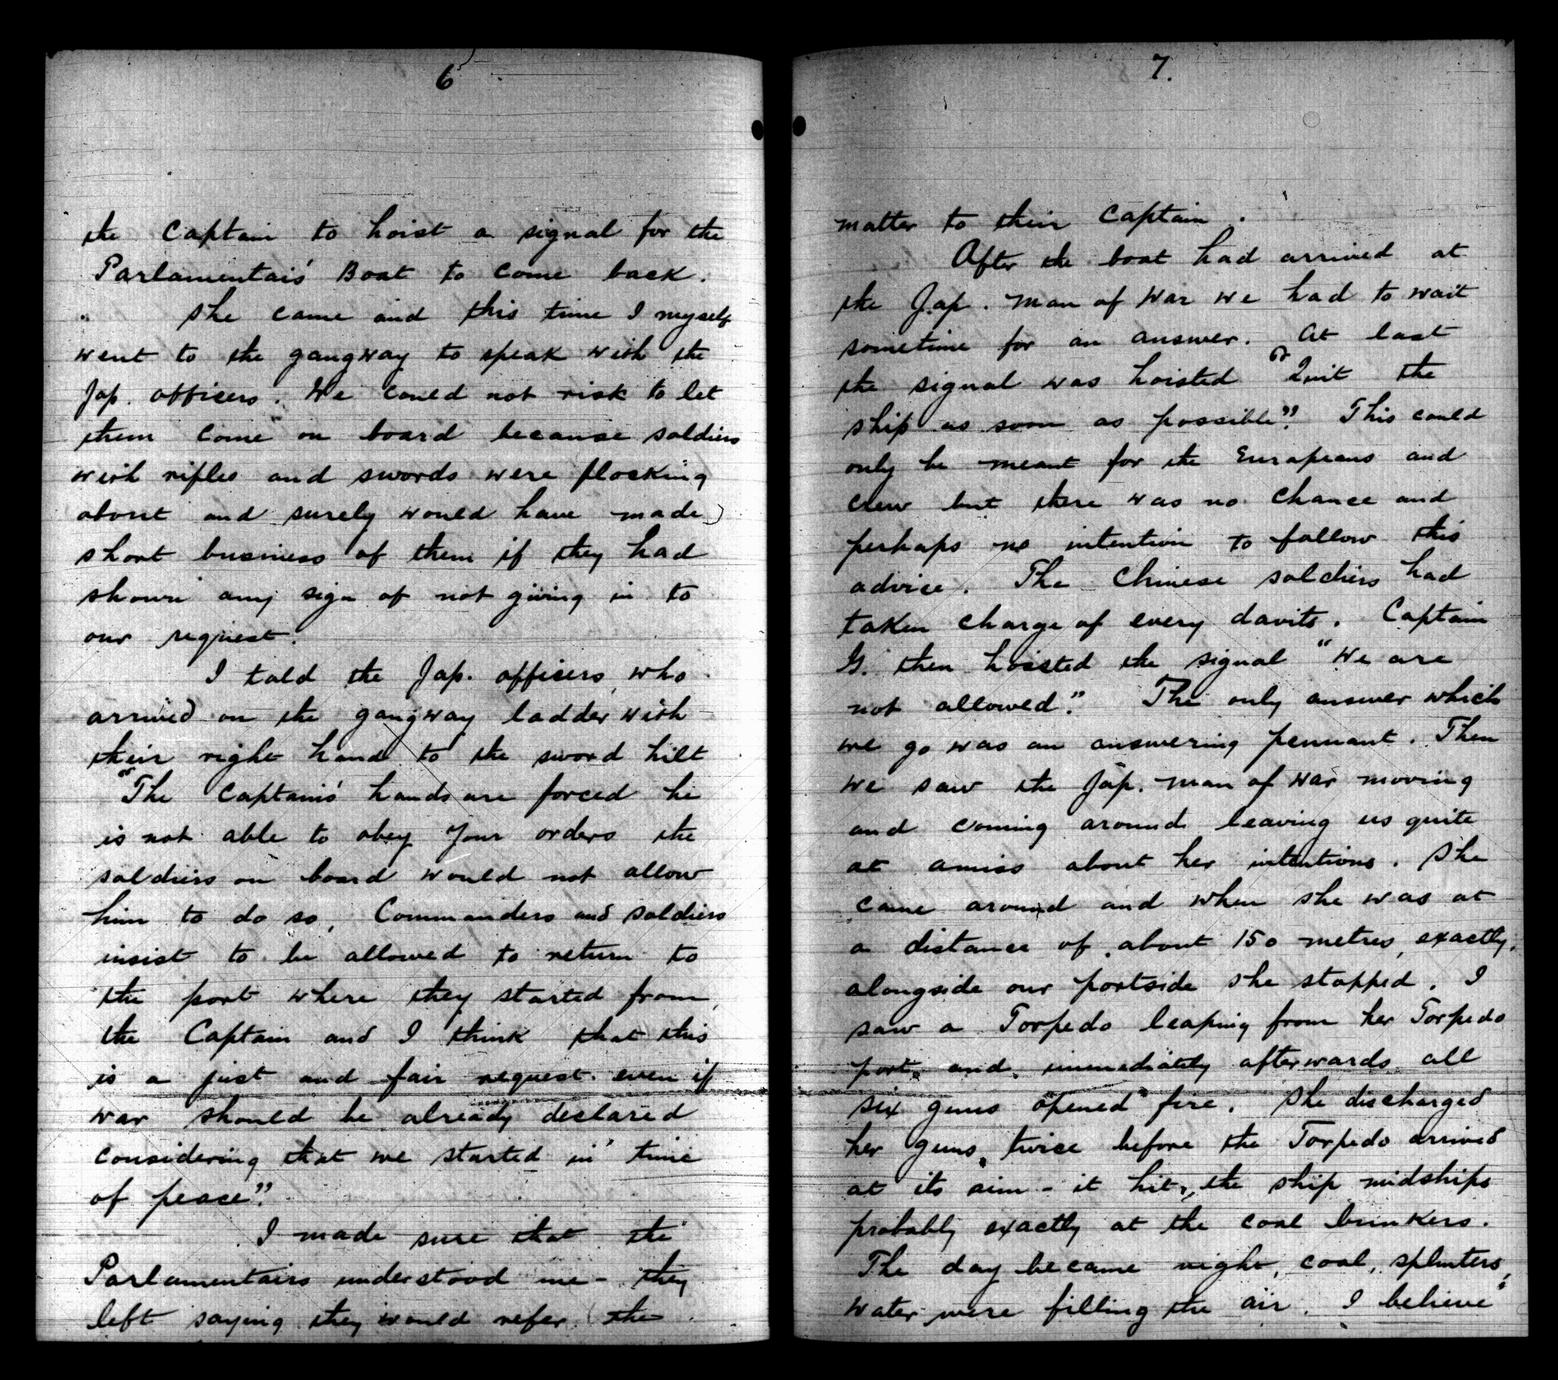 6
the Captain to hoist a signal for the
Parlamentairs' Boat to come back.
She came and this time I myself
went to the gangway to speak with the
Jap. officers. We could not risk to let
them come on board because soldiers
with rifles and swords were flocking
about and surely would have made
short business of them if they had
shown any sign of not giving in to
our request.
I told the Jap. officers who
arrived on the gangway ladder with
their right hand to the sword hilt
"The Captains' hands are forced he
is not able to obey Your orders the
soldiers on board would not allow
him to do so, Commanders and soldiers
insist to be allowed to return to
the port where they started from,
the Captain and I think that this
is a just and fair request even if
war should be already declared
considering that we started in time
of peace".
I made sure that the
Parlamentairs understood me - they
left saying they would refer the
7.
matter to their Captain.
After the boat had arrived at
the Jap. man of war we had to wait
sometime for an answer. At last
the signal was hoisted "Quit the
ship as soon as possible". This could
only be meant for the Europeans and
crew but there was no chance and
perhaps no intention to follow this
advice. The Chinese soldiers had
taken charge of every davits. Captain
G. then hoisted the signal "We are
not allowed". The only answer which
we go was an answering pennant. Then
we saw the Jap. man of war moving
and coming around leaving us quite
at amiss about her intentions. She
came around and when she was at
a distance of about 150 metres, exactly,
alongside our portside she stopped. I
saw a Torpedo leaping from her Torpedo
port, and immediately afterwards all
six guns opened fire. She discharged
her guns twice before the Torpedo arrived
at its aim - it hit the ship midships
probably exactly at the coal bunkers.
The day became night, coal, splinters,
water were filling the air. I believe